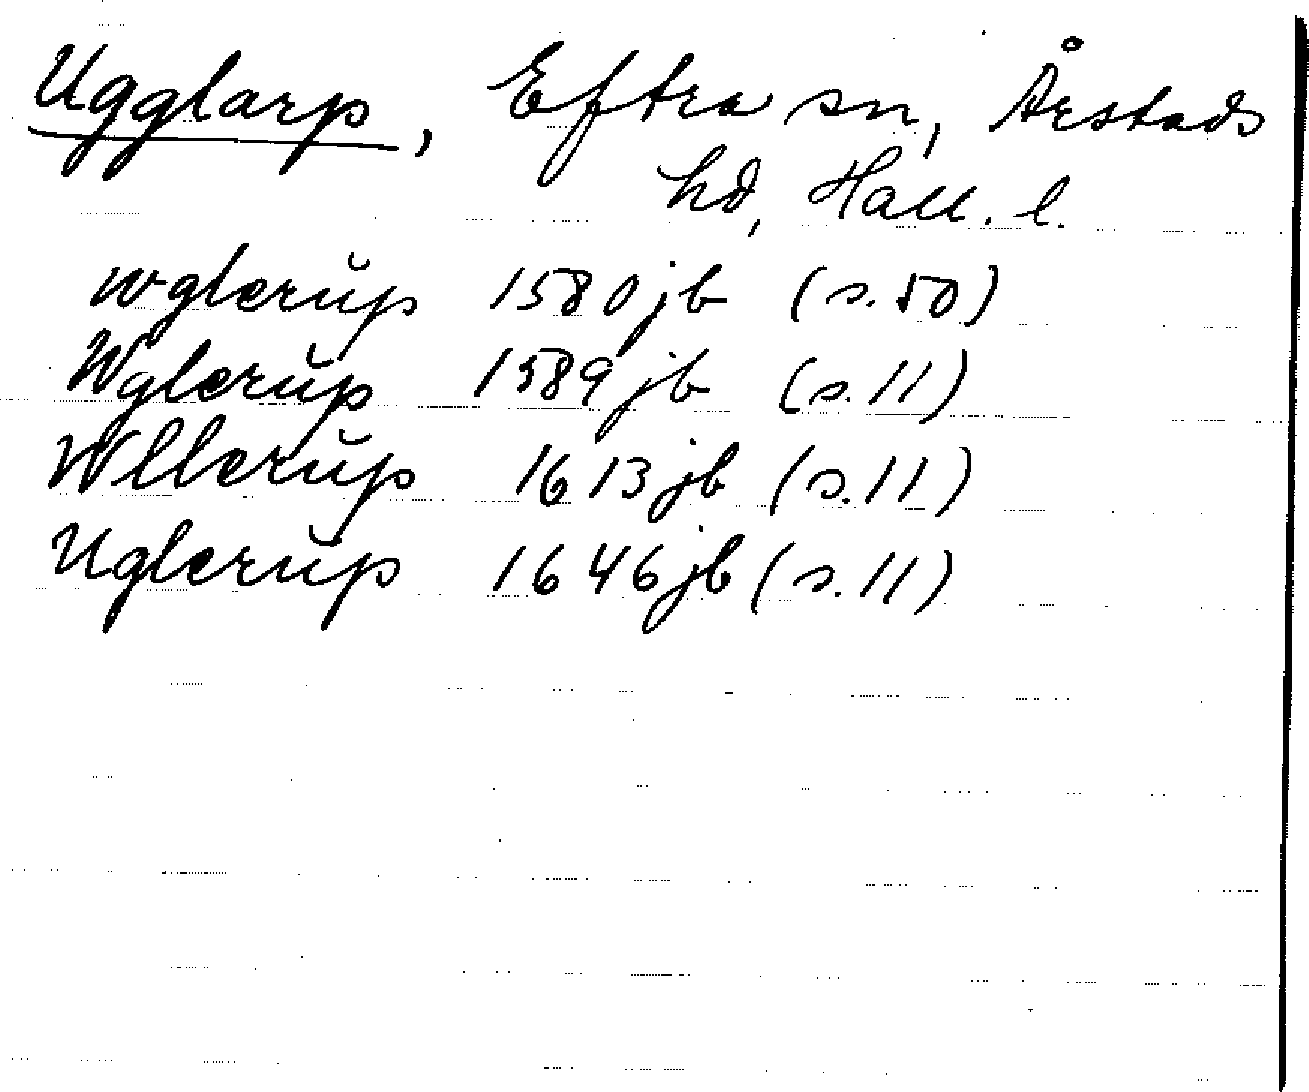 Ugglarp, Eftra sn, Årstads
hd, Hall. l.
wglerŭp 1580 jb (s. 50)
Wglerŭp 1589 jb (s. 11)
Wllerŭp 1613 jb (s. 11)
Uglerŭp 1646 jb (s. 11)